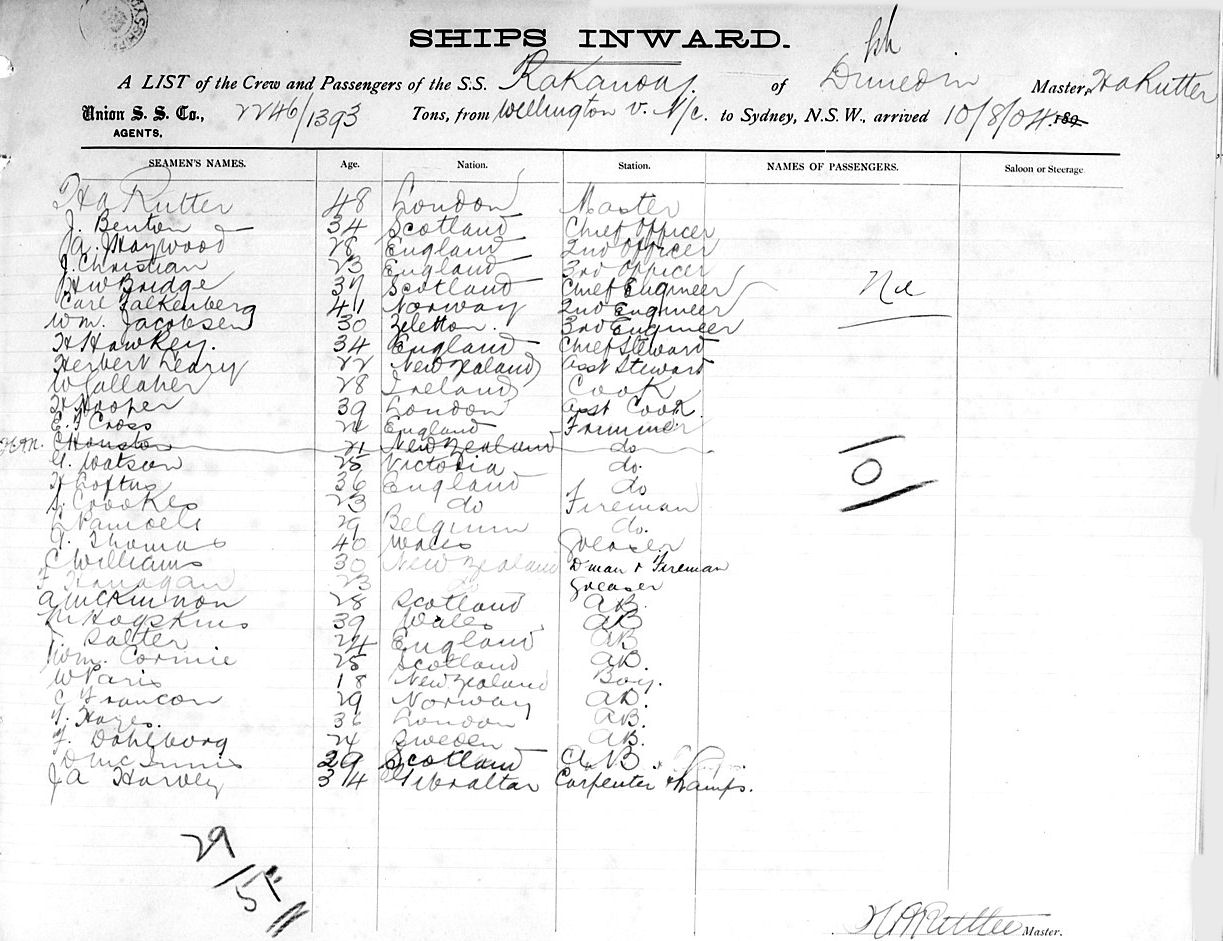 SHIPS INWARD.
A LIST of the Crew and Passengers of the S.S. Rakanoa of Dunedin Master, Ha Rutter
Union S. S. Co., 2246/1393 Tons, from Wellington v. N/c. to Sydney, N.S.W., arrived 10/8/04 189
AGENTS.
SEAMEN'S NAMES. Age. Nation. Station. NAMES OF PASSENGERS. Saloon or Steerage
Ha Rutter 48 London Master
J. Benton 34 Scotland Chief Officer
A. J Haywood 28 England 2nd Officer
J. Christian 23 England 3rd Officer
HW Bridge 39 Scotland Chief Engineer
Carl Falkenberg 41 Norway 2nd Engineer
Wm. Jacobsen 30 3rd Engineer
H Hawkey. 34 England Chief Steward
Herbert Leary 22 New Zealand Asst Steward
W Gallaher 28 Ireland Cook
H Hooper 39 London Asst Cook.
E. F Cross 24 England Trimmer
C Houston 21 New Zealand do
G. Watson 25 Victoria do.
H Loftus 36 England do
S. Crookes 23 do Fireman
29 Belgium do.
J. Thomas 40 Wales Greaser
C Williams 30 New Zealand Dman & Fireman
F Hanagan 23 do Greaser
A McKinnon 28 Scotland AB.
Hopskins 39 Wales AB
Salter 24 England AB
Wm. Cormie 25 Scotland AB.
W Paris 18 New Zealand Boy.
C Francon 29 Norway AB.
Hayes. 36 London AB.
F. Dahlborg 24 Sweden AB.
D McInnis 29 Scotland A.B.
J A Harvey 34 Gibraltar Carpenter & Lamps.
29
Master.